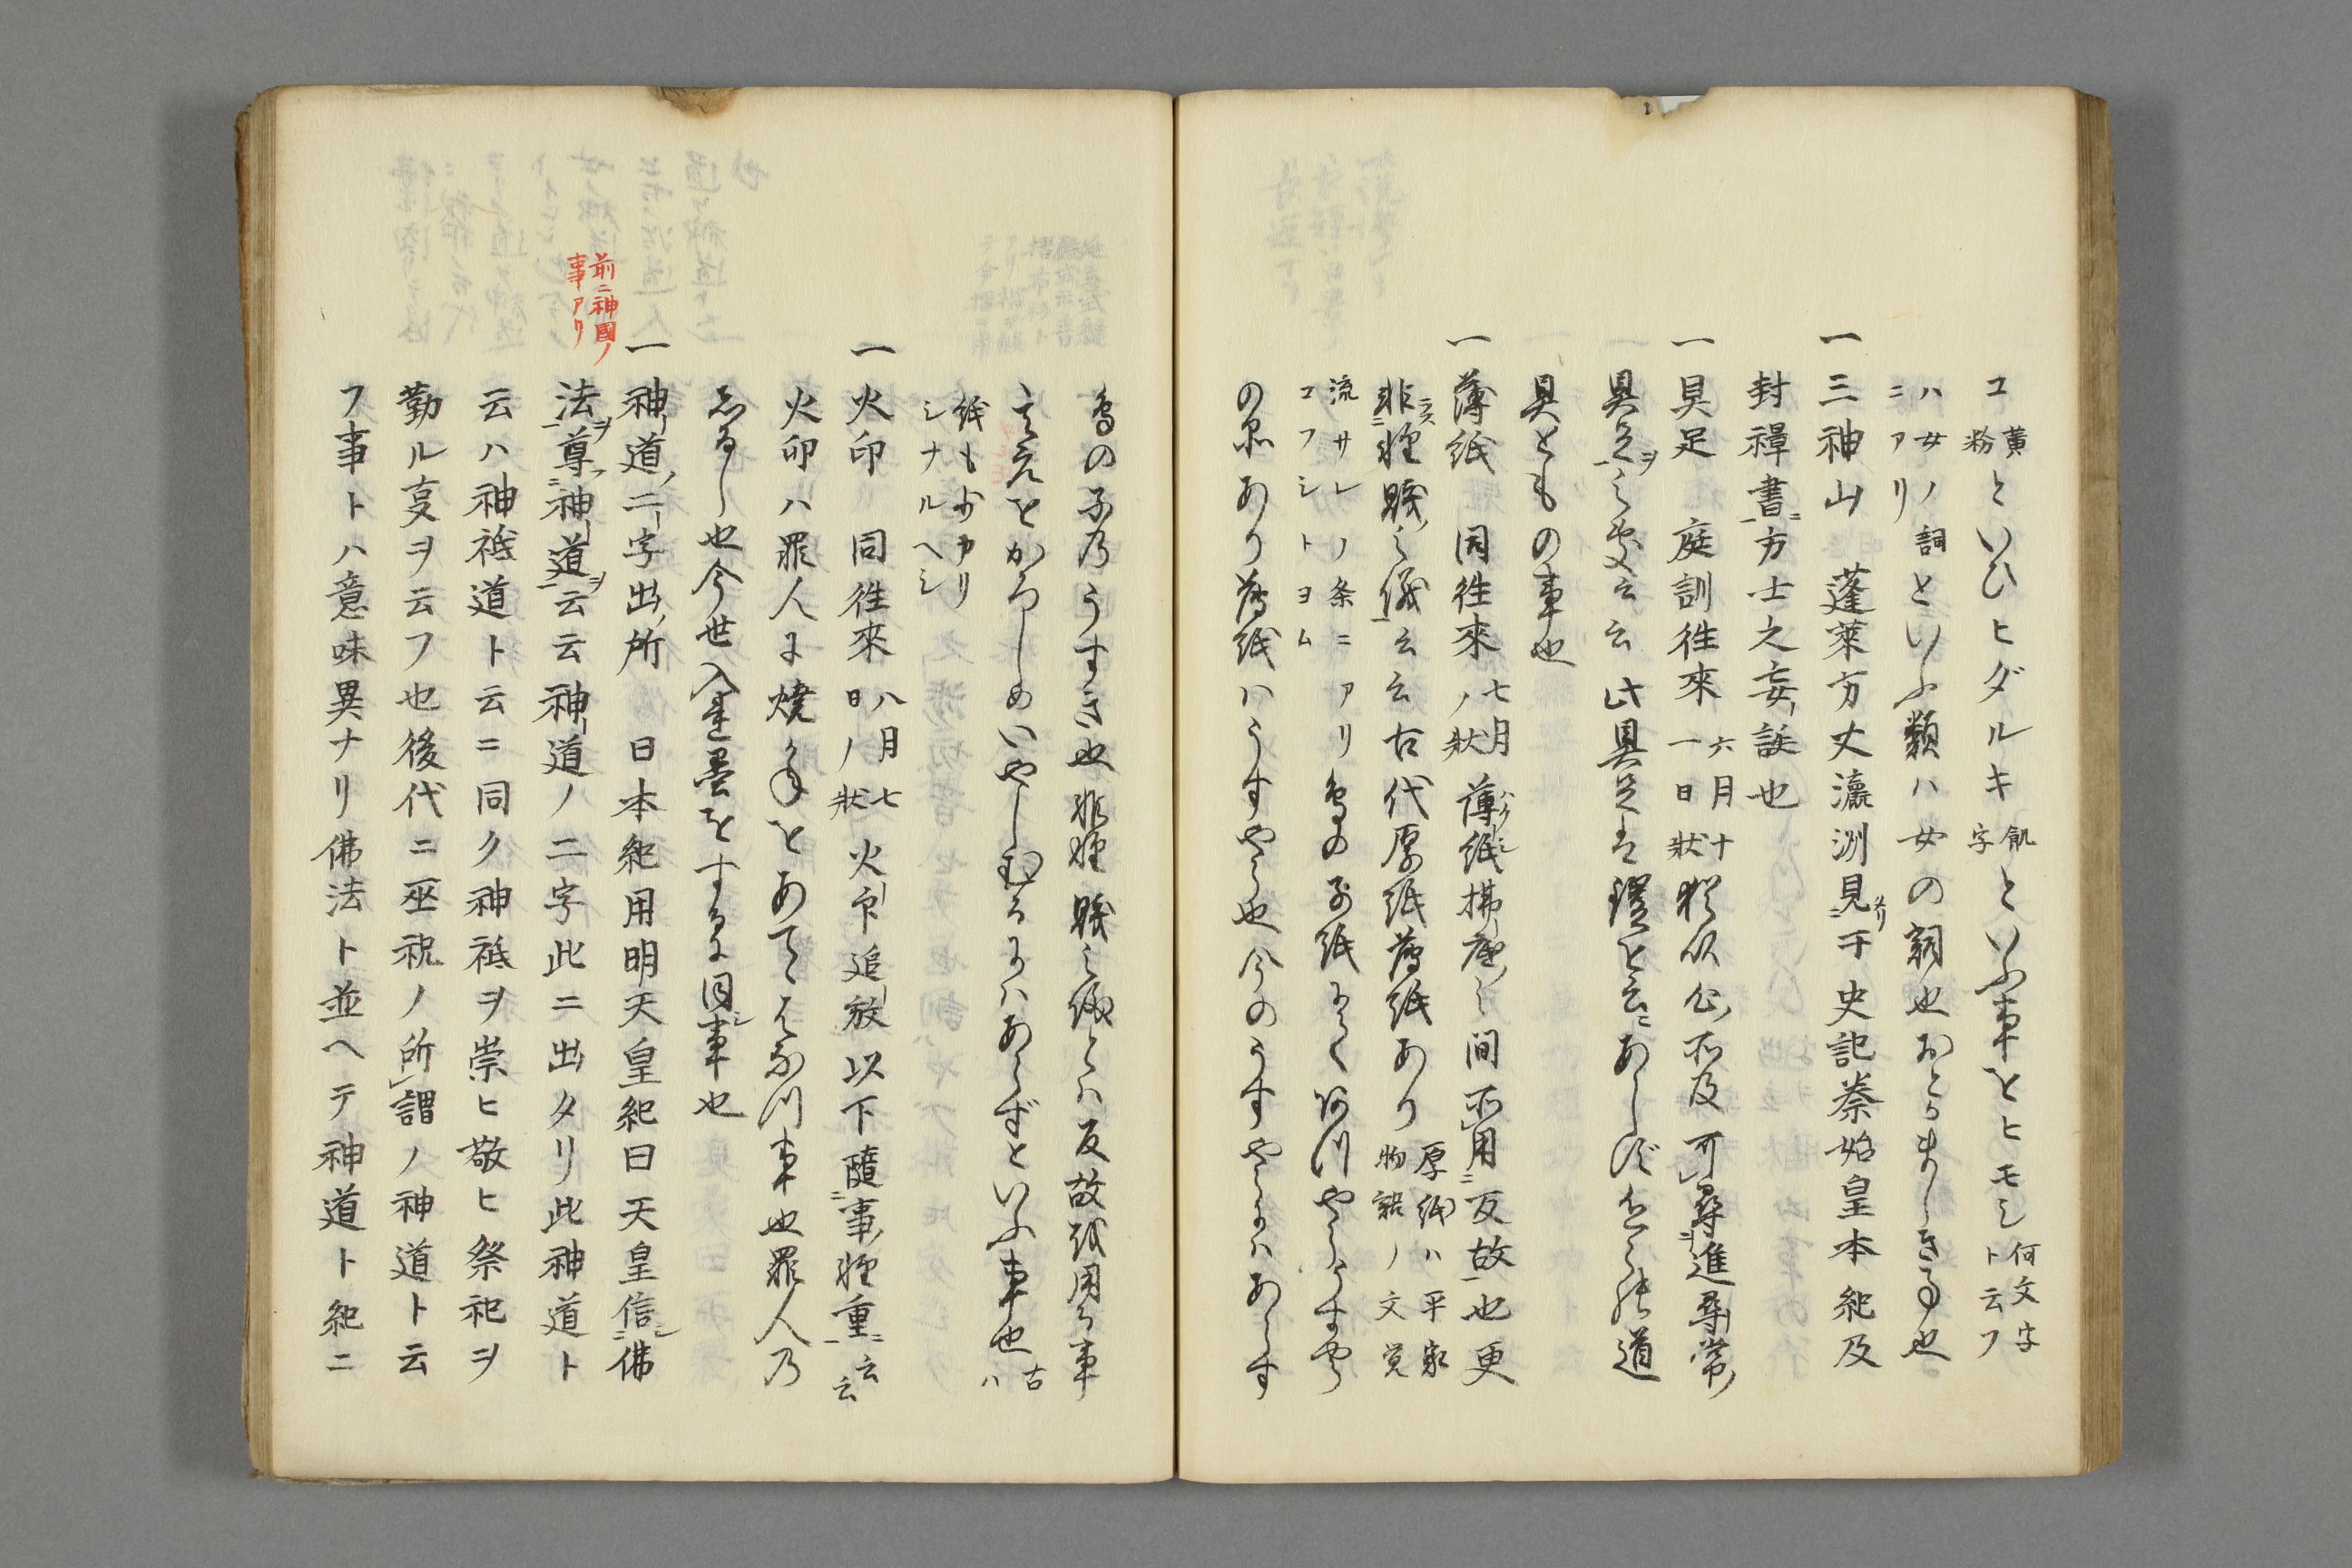 コ黄粉といひヒダルキ飢字といふ事をヒモシ何文字ト云フ
ハ女ノ詞ニアリといふ類ハ女の詞也おとなしき事也
一三神山 蓬萊方丈瀛洲見于史記秦始皇本紀及
封禅書方士之妄誕也
一具足 庭訓往來六月十一日狀 猶以 不及可尋進尋常
具足之處云云此具足は鎧と云にあらず 道
具ともの事也
一薄紙 同往來七月ノ狀薄紙拂底之間所用反故也更
非軽賤之儀云云古代厚紙薄紙あり厚紙ハ平家物語ノ文覚
流サレノ条ニアリ鳥の子紙
コフシトヨム
の品あり薄紙ハうすやう也今のうすやうにハあらす
鳥の子乃うすき也非軽賤之儀とハ反故紙用る事
をかろしめいやしむるにハあらずといふ事也古ハ
紙も少カリシナルヘシ
一火印 同往來八月七日ノ狀火印追放以下隨事軽重云云
火印ハ罪人に燒 をあて 事也罪人乃
しるし也今世入墨をするに同事也
前ニ神國ノ事アリ
一神道ノ二字出所 日本紀用明天皇紀曰天皇信佛
法尊神道云云神道ノ二字此ニ出タリ此神道ト
云ハ神祇道ト云ニ同ク神祇ヲ崇ヒ敬ヒ祭祀ヲ
勤ル叓ヲ云フ也後代ニ巫祝ノ所謂ノ神道ト云
フ事トハ意味異ナリ佛法ト並ヘテ神道ト紀ニ